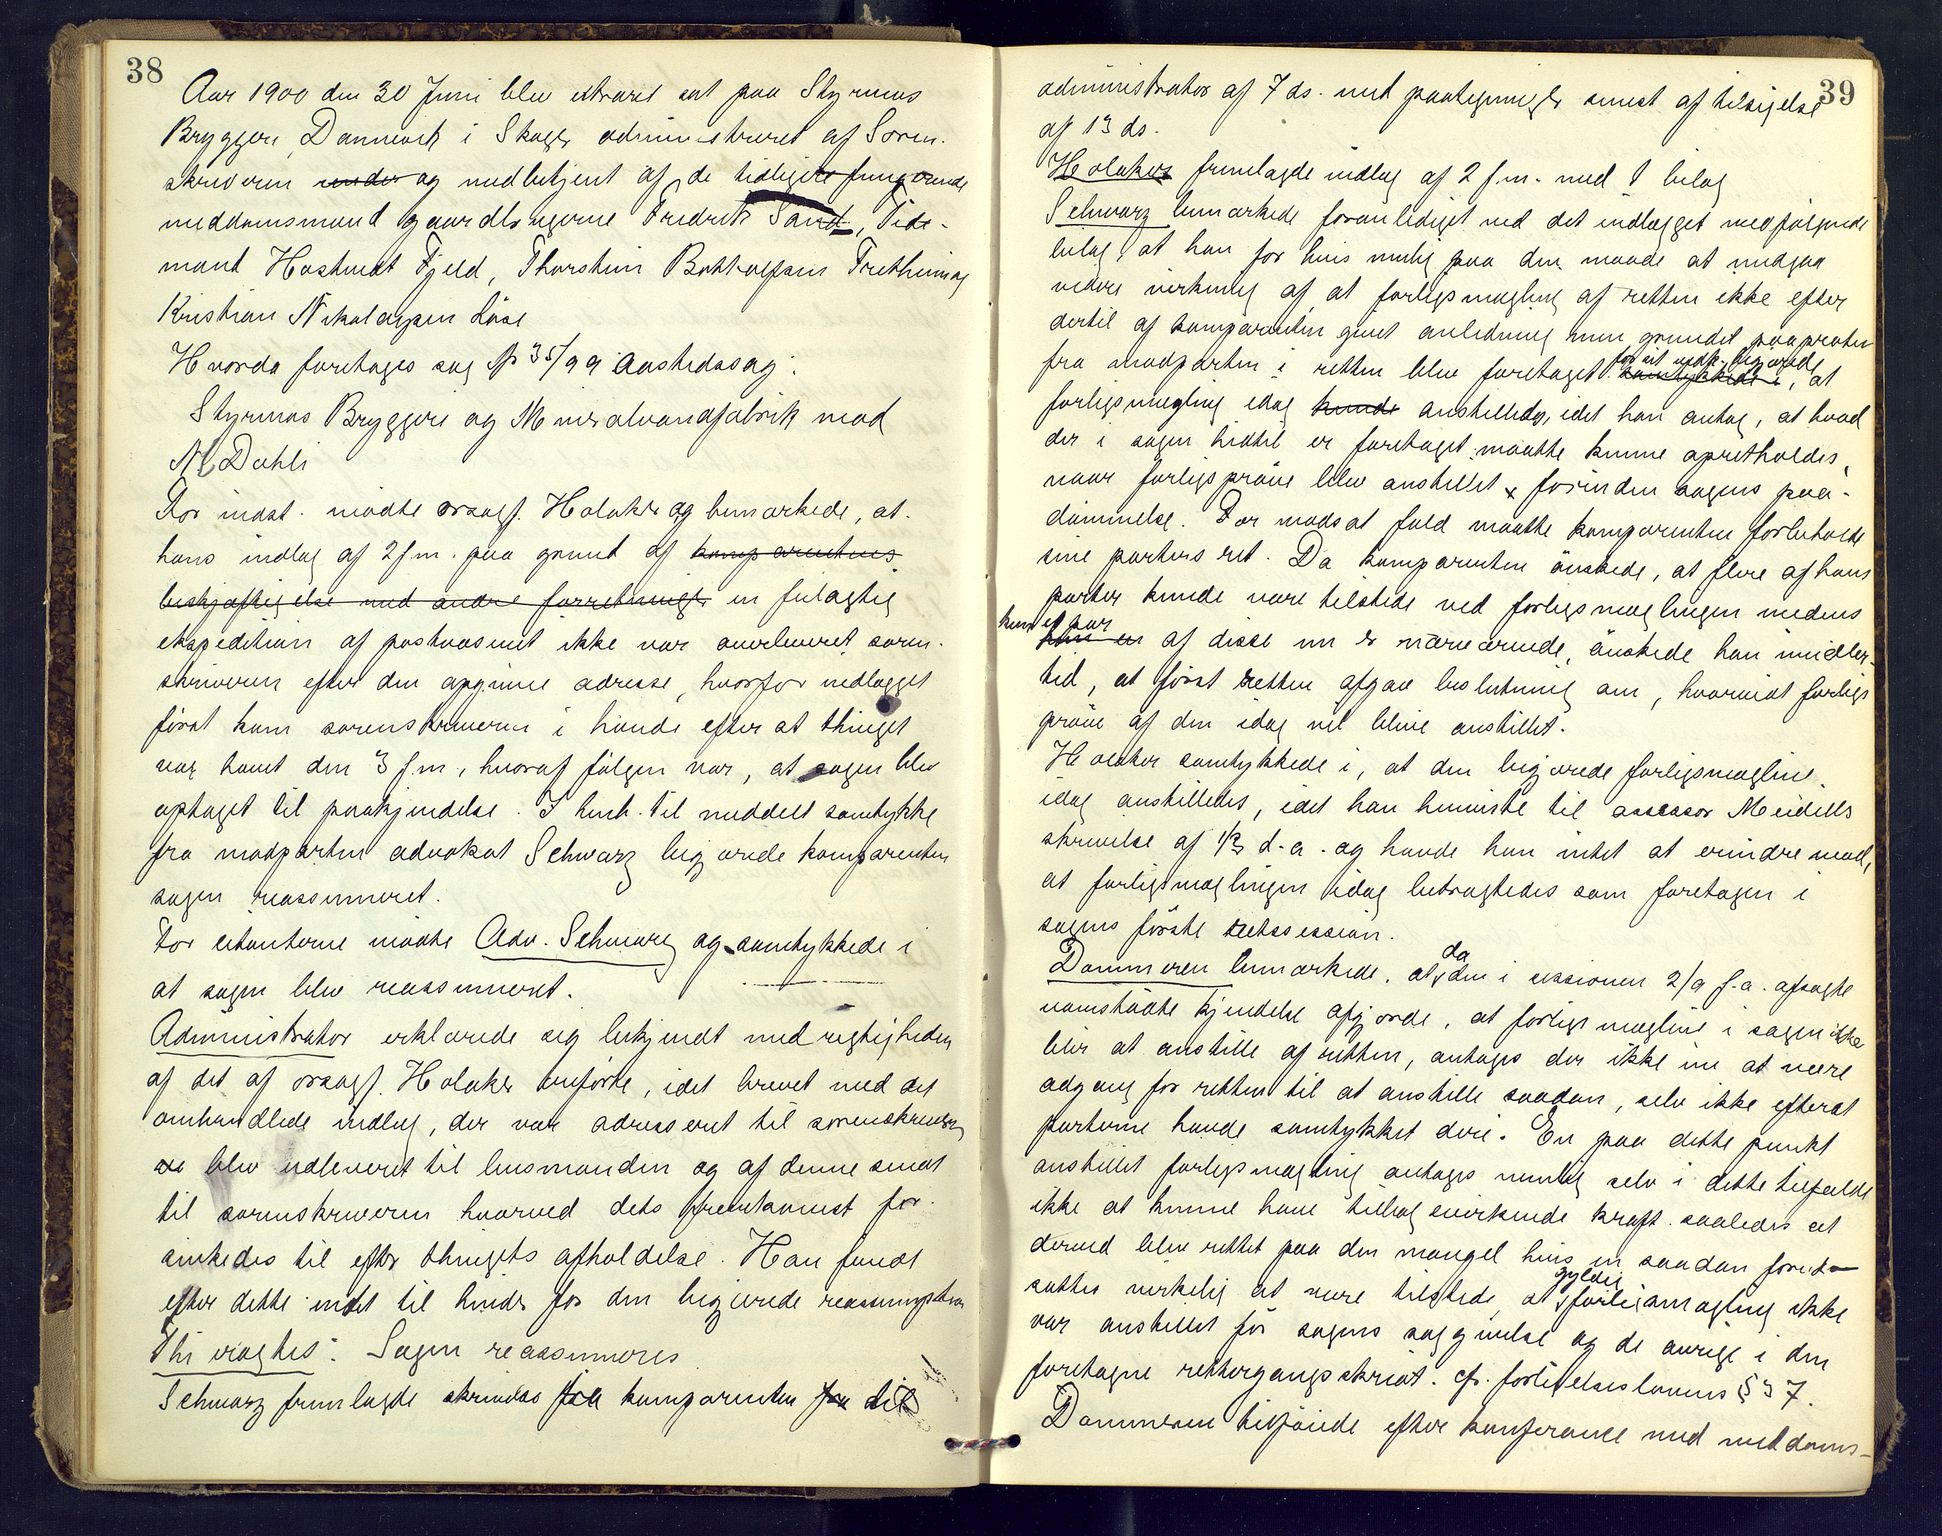 38
Aar 1900 den 30 Juni blev extraret sat paa Styrmos
Bryggeri, Danmark i Skage administreret af Soren-
skriveren under og medbetjent af de tidligere fungerende
meddomsmænd gaardbrugerne Fredrik Sand, Tide-
mand Hastvedt Fjeld, Thorstein Bottolfsen Tretheim og
Kristian Nikolaysen Löse
Hvorda foretoges sag No 35/99 Aastedssag:
Styrmos Bryggeri og Mineralvandfabrik mod
N Dahli
For indst. mödte oversagf. Holaker og bemærkede, at
hans indlæg af 2 f.m. paa grund af komparentens
beskjæftigelse med andre forretninger en feilagtig
ekspedition af postvæsenet ikke var overleveret soren-
skriveren efter den opgivne adresse, hvorfor indlægget
först kom sorenskriveren i hænde efter at thinget
var hævet den 3 f.m., hvoraf fölgen var, at sagen blev
optaget til paakjendelse. I henh. til meddelt samtykke
fra modparten advokat Schwarz begjærede komparenten
sagen reassumeret.
For citanterne mödte Adv. Schwarz og samtykkede i
at sagen blev reassumeret.
Administrator erklærede sig bekjendt med rigtigheden
af det af oversagf. Holaker anförte, idet brevet med det
omhandlede indlæg, der var adresseret til sorenskriveren
blev udleveret til lensmanden og af denne sendt
til sorenskriveren hvorved dets fremkomst for-
sinkedes til efter thingets afholdelse. Han fandt
efter dette intet til hinder for den begjærede reassumption
Thi vragtes: Sagen reassumeres
Schwarz fremlagde skrivelse fra komparenten fra til
39
administrator af 7 ds. med paategninger senest af tilsigelse
af 13 ds.
Holaker fremlagde indlæg af 2 f.m. med 1 bilag
Schwarz bemærkede foranlediget ved det indlægget medfölgende
bilag, at han for hvis mulig paa den maade at undgaa
videre virkning af at forligsmægling af retten ikke efter
dertil af komparenten givet anledning men grundet paa protest
fra modparten i retten blev foretaget for sit vedk. begjærede samtykkede i, at
forligsmægling idag kunde anstilledes, idet han antog, at hvad
der i sagen hidtil er foretaget maatte kunne opretholdes,
naar forligspröve blev anstillet forinden sagens paa-
dömmelse. For modsat fald maatte komparenten forbeholde
sine parters ret. Da komparenten önskede, at flere af hans
parter kunde være tilstede ved forligsmæglingen medens
kun et par kun en af disse nu er nærværende, önskede han imidler-
tid, at först retten afgav beslutning om, hvorvidt forligs
pröve af den idag vil blive anstillet.
Holaker samtykkede i, at den begjærede forligsmægling
idag anstilledes, idet han henviste til assessor Meidells
skrivelse af 1/3 d.a. og havde han intet at erindre mod,
at forligsmæglingen idag betragtedes som foretagen i
sagens förste retssession.
Dommeren bemærkede, at da den i sessionen 2/9 f.a. afsagte
namstödte kjendelse afgjorde, at forligsmægling i sagen ikke
blir at anstille af retten, antages der ikke nu at være
adgang for retten til at anstille saadan, selv ikke efterat
parterne havde samtykket deri. En paa dette punkt
anstillet forligsmægling antages nemlig selv i dette tilfælde
ikke at kunne have tilbagevirkende kraft saaledes at
derved blev rettet paa den mangel hvis en saadan forud-
sættes virkelig at være tilstede, at gyldig forligsmægling ikke
var anstillet för sagens saggivelse og de övrige i den
foretagne rettergangsskridt. cfr. forligelseslovens § 37.
Dommeren tilföiede efter konferance med meddoms-